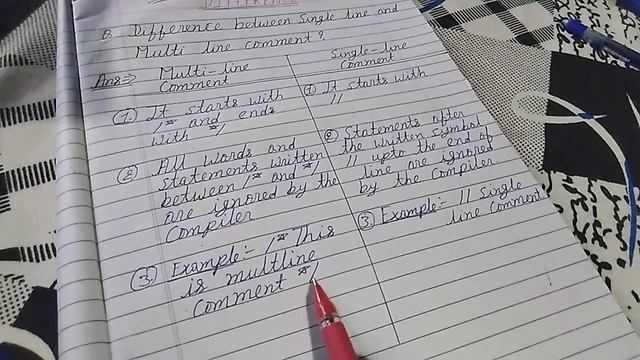 DIFFERENCE
6. Difference between Single line and
Multi line comment?
Ans⇒ Multi-line
Comment
① It starts with
/* and ends
with */
② All words and
statements written
between /* and */
are ignored by the
Compiler
③ Example:- /* This
is multline
comment */
Single-line
Comment
① It starts with
//
② Statements after
the written symbol
// upto the end of
line are ignored
by the Compiler
③ Example:- // Single
line comment